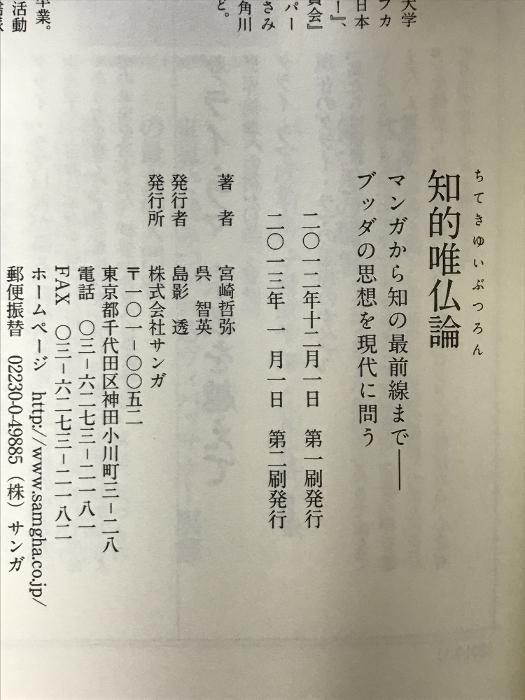 大学
フカ
日本
!』、
員会』
パー
さみ
角川
と。
卒業。
活動
ちてきゆいぶつろん
知的唯仏論
マンガから知の最前線まで――
ブッダの思想を現代に問う
二〇一二年十二月一日　第一刷発行
二〇一三年　一　月一日　第二刷発行
著　者　宮崎哲弥
呉　智英
発行者　島影　透
発行所　株式会社サンガ
〒一〇一-〇〇五二
東京都千代田区神田小川町三-二八
電話　〇三-六二七三-二一八一
FAX　〇三-六二七三-二一八二
ホームページ　http://www.samgha.co.jp/
郵便振替　02230-0-49885（株）サンガ